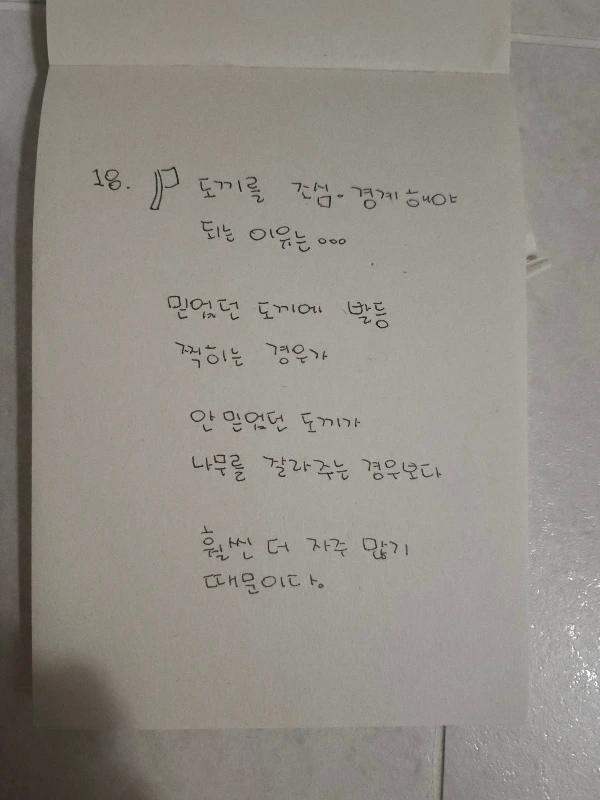 18. 도끼를 조심·경계해야
되는 이유는...
믿었던 도끼에 발등
찍히는 경우가
안 믿었던 도끼가
나무를 잘라주는 경우보다
훨씬 더 자주 많기
때문이다.